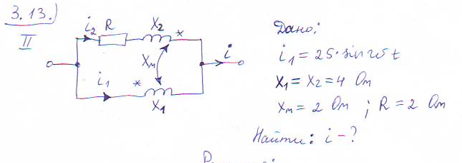 3.13.)
II
i₂ R X₂ *
Xм
i
i₁ * X₁
Дано:
i₁ = 25·sin ωt
X₁ = X₂ = 4 Ом
Xм = 2 Ом ; R = 2 Ом
Найти: i - ?